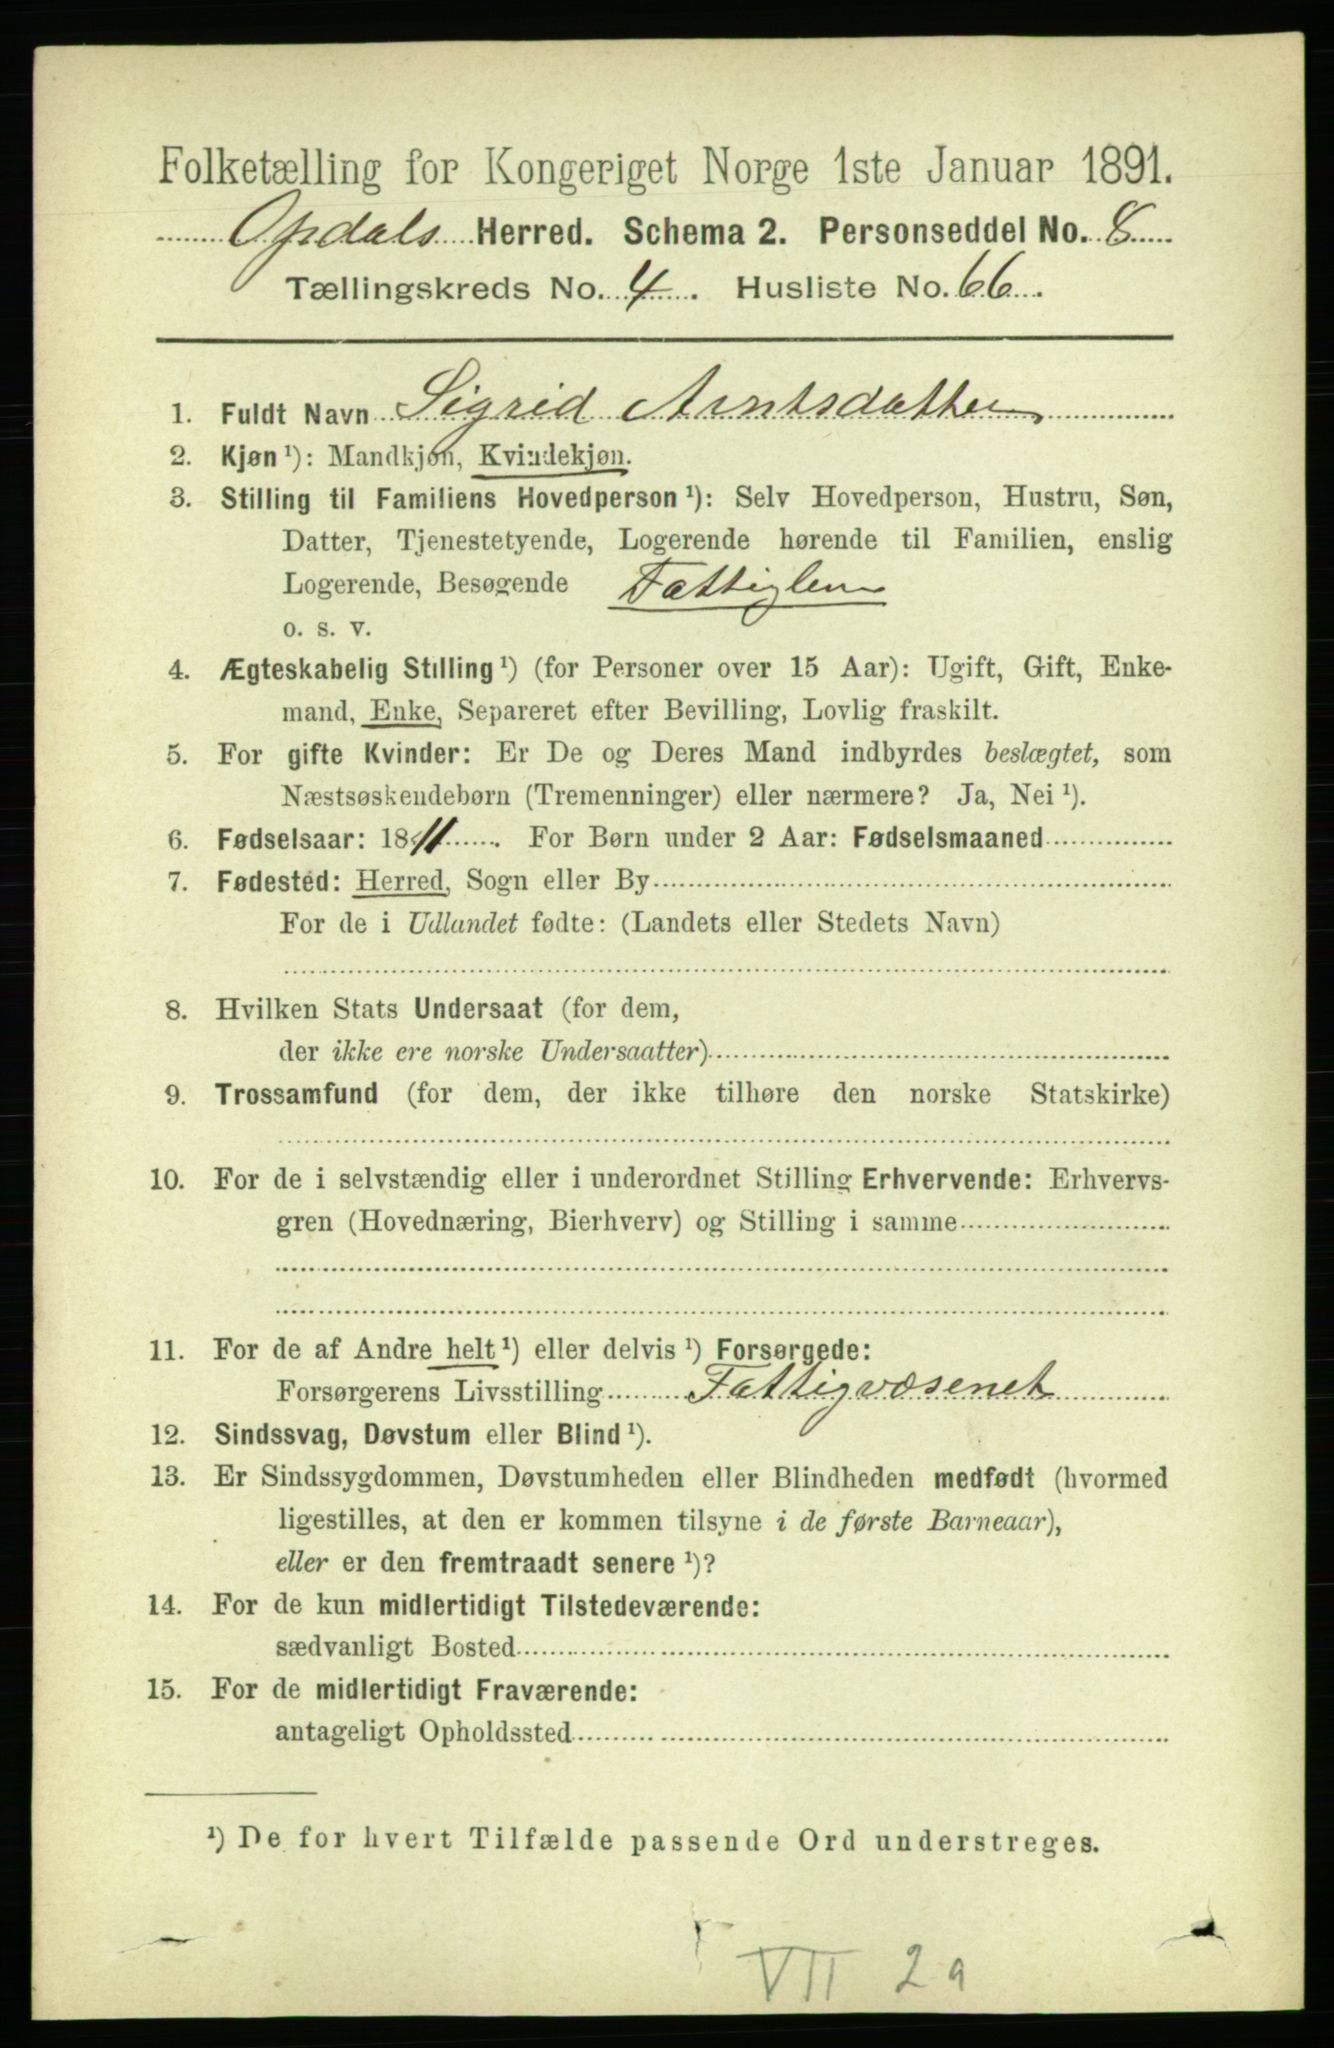 Folketælling for Kongeriget Norge 1ste Januar 1891.
Opdals Herred. Schema 2. Personseddel No. 8
Tællingskreds No. 4. Husliste No. 66.
1. Fuldt Navn Sigrid Arntsdatter
2. Kjøn ¹): Mandkjøn, Kvindekjøn.
3. Stilling til Familiens Hovedperson ¹): Selv Hovedperson, Hustru, Søn,
Datter, Tjenestetyende, Logerende hørende til Familien, enslig
Logerende, Besøgende Fattiglem
o. s. v.
4. Ægteskabelig Stilling ¹) (for Personer over 15 Aar): Ugift, Gift, Enke-
mand, Enke, Separeret efter Bevilling, Lovlig fraskilt.
5. For gifte Kvinder: Er De og Deres Mand indbyrdes beslægtet, som
Næstsøskendebørn (Tremenninger) eller nærmere? Ja, Nei ¹).
6. Fødselsaar: 1811. For Børn under 2 Aar: Fødselsmaaned
7. Fødested: Herred, Sogn eller By
For de i Udlandet fødte: (Landets eller Stedets Navn)
8. Hvilken Stats Undersaat (for dem,
der ikke ere norske Undersaatter)
9. Trossamfund (for dem, der ikke tilhøre den norske Statskirke)
10. For de i selvstændig eller i underordnet Stilling Erhvervende: Erhvervs-
gren (Hovednæring, Bierhverv) og Stilling i samme
11. For de af Andre helt ¹) eller delvis ¹) Forsørgede:
Forsørgerens Livsstilling Fattigvæsenet
12. Sindssvag, Døvstum eller Blind ¹).
13. Er Sindssygdommen, Døvstumheden eller Blindheden medfødt (hvormed
ligestilles, at den er kommen tilsyne i de første Barneaar),
eller er den fremtraadt senere ¹)?
14. For de kun midlertidigt Tilstedeværende:
sædvanligt Bosted
15. For de midlertidigt Fraværende:
antageligt Opholdssted
¹) De for hvert Tilfælde passende Ord understreges.
VII 2a